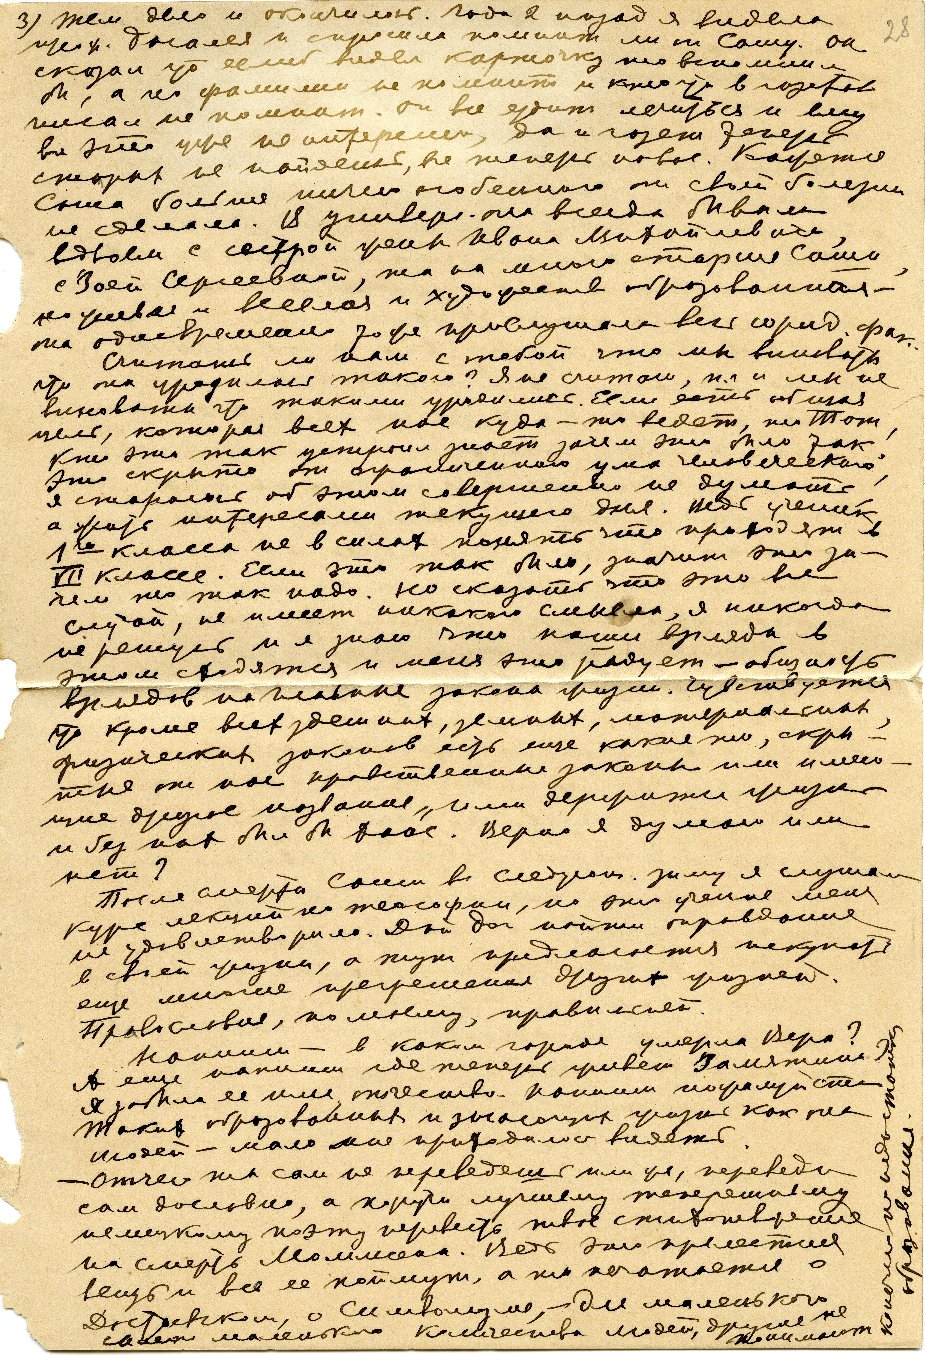 28
3) тем дело и окончилось. Года 2 назад я видела
его. Догнал и спросила помнит ли он Сашу. Он
сказал что если б видел карточку то вспомнил
бы, а по фамилии не помнит и кто что в газетах
писал не помнит. Он все ездит лечиться и ему
все это уже не интересно, да и газет теперь
старых не найдешь, все теперь новое. Кажется
Саша больше ничего особенного от своей болезни
не сделала. В универс. она всегда бывала
вдвоем с сестрой жены Ивана Михайловича,
с Зоей Сергеевной, та на много старше Саши,
но живая и веселая и художеств образованная —
она одновременно тоже прослушала весь юрид. фак.
Считаешь ли нам с тобой что мы виноваты
что она уродилась такого? Я не считаю, п.ч и мы не
виноваты что такими уродились. Если есть общая
цель, которая всех нас куда-то ведет, то Тот,
кто это так устроил знает зачем это было так
это скрыто от ограниченного ума человеческого,
я стараюсь об этом совершенно не думать
а жить интересами текущего дня. Ведь ученик
1го класса не в силах понять что проходят в
VII классе. Если это так было, значит это за-
чем то так надо. Но сказать что это все
случай, не имеет никакого смысла, я никогда
не решусь и я знаю что наши взгляды в
этом сходятся и меня это радует — общность
взглядов на главные закона жизни. Чувствуется
что кроме всех здешних, земных, материальных,
физических законов есть еще какие то, скры-
тые от нас нравственные законы или имею-
щие другое название, ими держится жизнь
и без них был бы хаос. Верно я думаю или
нет?
После смерти Саши в следующ. зиму я слушала
курс лекций по теософии, но это учение меня
не удовлетворило. Дай бог найти оправдание
в своей жизни, а тут предлагается искупать
еще многие прегрешения других жизней.
Православие, по моему, правильней.
Напиши — в каком городе умерла Вера?
А еще напиши где теперь живет Замятина
я забыла ее имя, отчество. Напиши пожалуйста
таких образованных и знающих жизнь как она
людей — мало мне приходилось видеть.
— Отчего ты сам не переведешь или же, переведи
сам дословно, а поручи лучшему теперешнему
немецкому поэту перевесть твое стихотворение
на смерть Моммсена. Ведь это прелестная
вещь и все ее поймут, а то печатается о
Достоевском, о Символизме, — для маленького
маленького количества людей, другие не
понимают
по недостатку
образования.